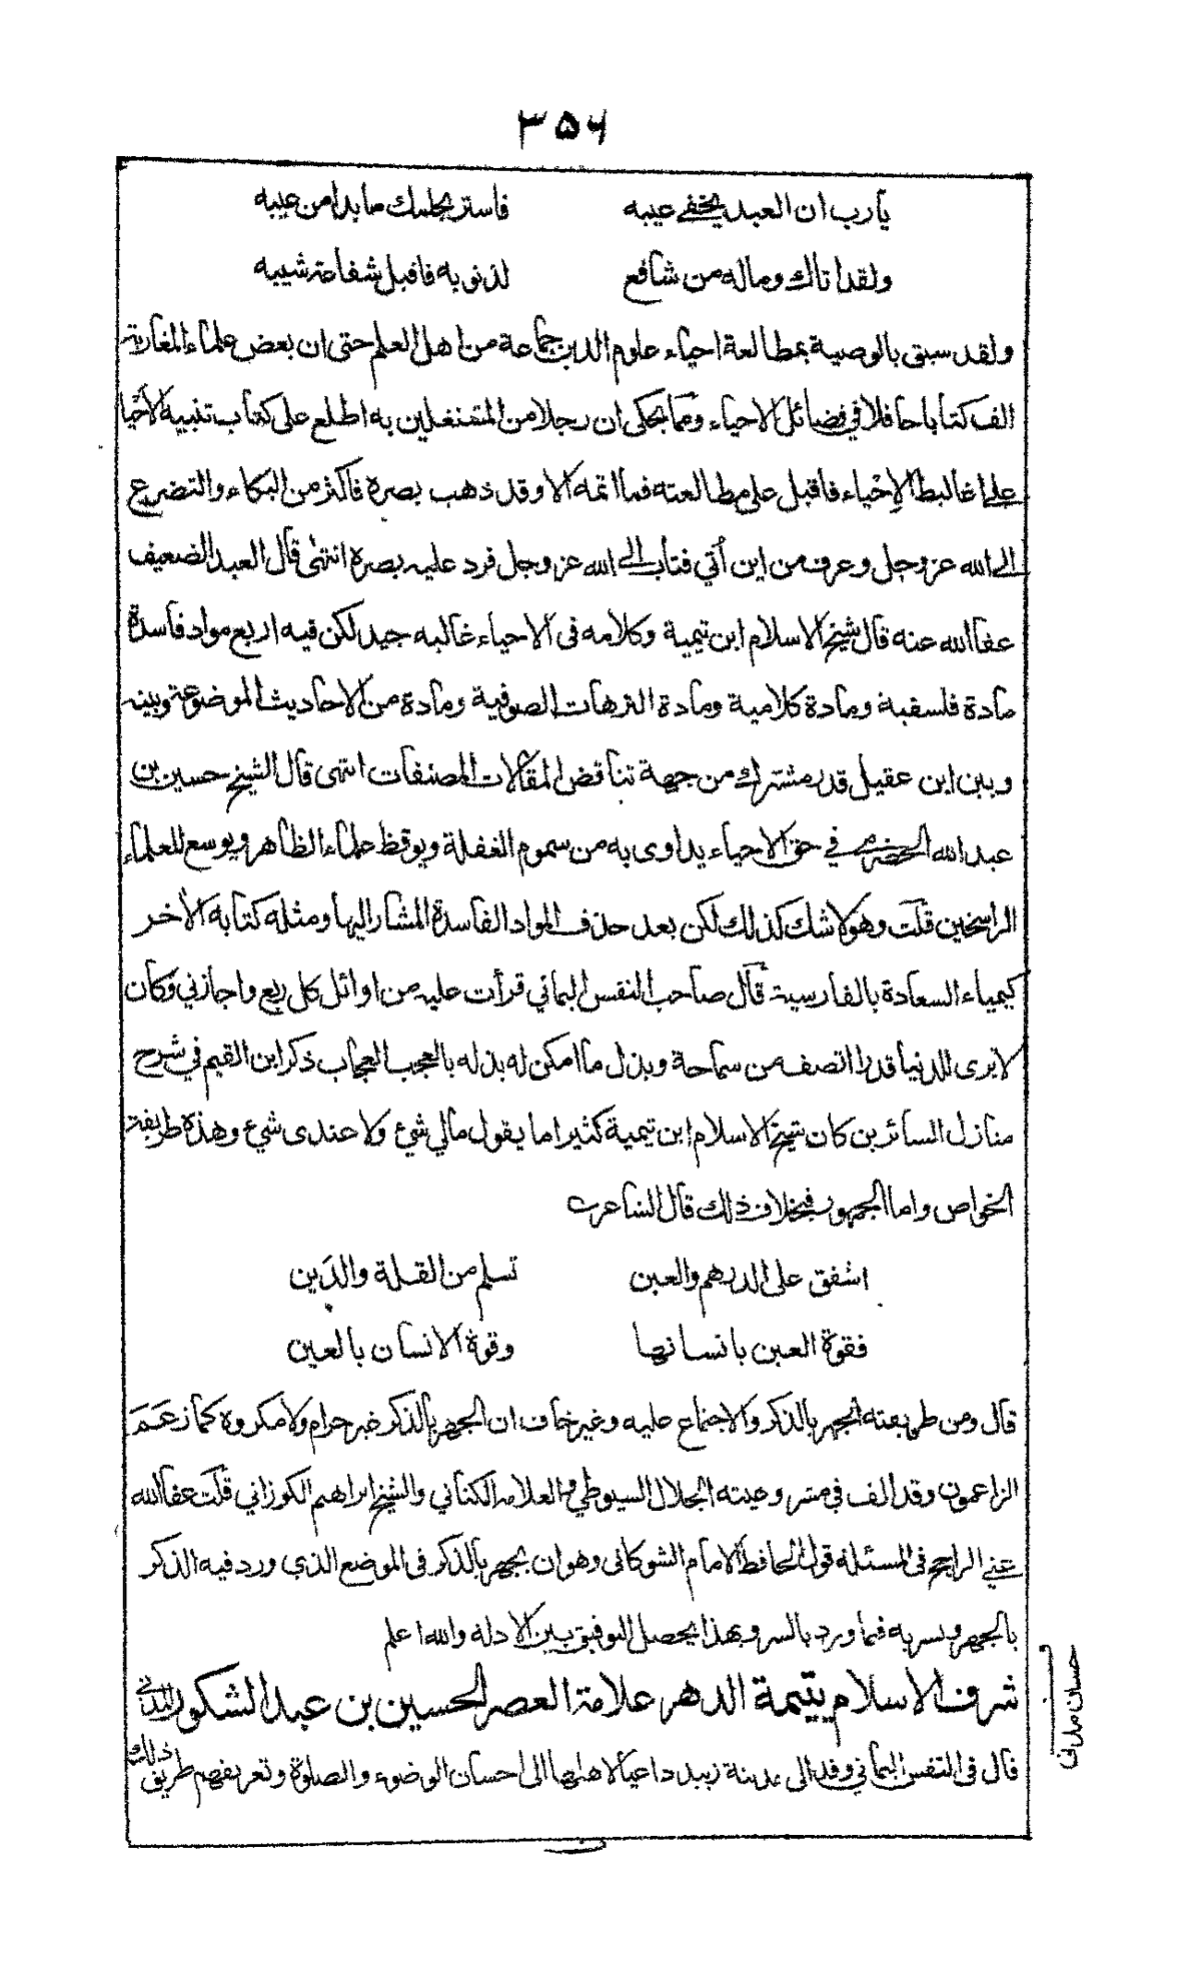 ٣٥٦
يارب ان العبد يخفي عيبه فاستر بحلمك ما بدا من عيبه
ولقد اتاك وماله من شافع لذنوبه فاقبل شفاعة شيبه
ولقد سبق بالوصية بمطالعة احياء علوم الدين جماعة من اهل العلم حتى ان بعض علماء المغاربة
الف كتابا حافلا في فضائل الاحياء ومما يحكى ان رجلا من المتنغلين به اطلع على كتاب تنبيه الأحيا
على اغاليط الإحياء فاقبل على مطالعته فما اتمه الا وقد ذهب بصره فاكثر من البكاء والتضرع
الى الله عز وجل وعرف من اين أتي فتاب الى الله عز وجل فرد عليه بصره انتهى قال العبد الضعيف
عفا الله عنه قال شيخ الاسلام ابن تيمية وكلامه فى الاحياء غالبه جيد لكن فيه اربع مواد فاسدة
مادة فلسفية ومادة كلامية ومادة الترهات الصوفية ومادة من الاحاديث الموضوعة وبينه
وبين ابن عقيل قدر مشترك من جهة تناقض المقالات المصنفات انتهى قال الشيخ حسين بن
عبد الله الحضرمي في حق الاحياء يداوى به من سموم الغفلة ويوقظ علماء الظاهر ويوسع للعلماء
الراسخين قلت وهو لا شك كذلك لكن بعد حذف المواد الفاسدة المشار اليها ومثله كتابه الأخر
كيمياء السعادة بالفارسية قال صاحب النفس اليماني قرأت عليه من اوائل كل ربع واجازني وكان
لا يرى للدنيا قدرا اتصف من سماحة وبذل ما امكن له بذله بالعجب العجاب ذكر ابن القيم في شرح
منازل السائرين كان شيخ الاسلام ابن تيمية كثيرا ما يقول مالي شئ ولا عندى شئ وهذه طريقة
الخواص واما الجمهور فبخلاف ذلك قال الشاعر
اشفق على الدرهم والعين تسلم من القلة والدَين
فقوة العين بانسانها وقوة الانسان بالعين
قال ومن طريقته الجهر بالذكر والاجتماع عليه وغير خاف ان الجهر بالذكر غير حرام ولا مكروه كما زعَمَ
الزاعمون وقد الف في مشروعيته الجلال السيوطي والعلامة الكناني والشيخ ابراهيم الكوراني قلت عفا الله
عني الراجح فى المسئلة قول الحافظ الامام الشوكانى وهو ان يجهر بالذكر فى الموضع الذي ورد فيه الذكر
بالجهر ويسر به فيما ورد بالسر وبهذا يحصل التوفيق بين الادلة والله اعلم
شرف الاسلام يتيمة الدهر علامة العصر الحسين بن عبد الشكور المدني
قال فى النفس اليماني وفد الى مدينة زبيد داعيا لاهلها الى احسان الوضوء والصلوة وتعريفهم طريق ذلك